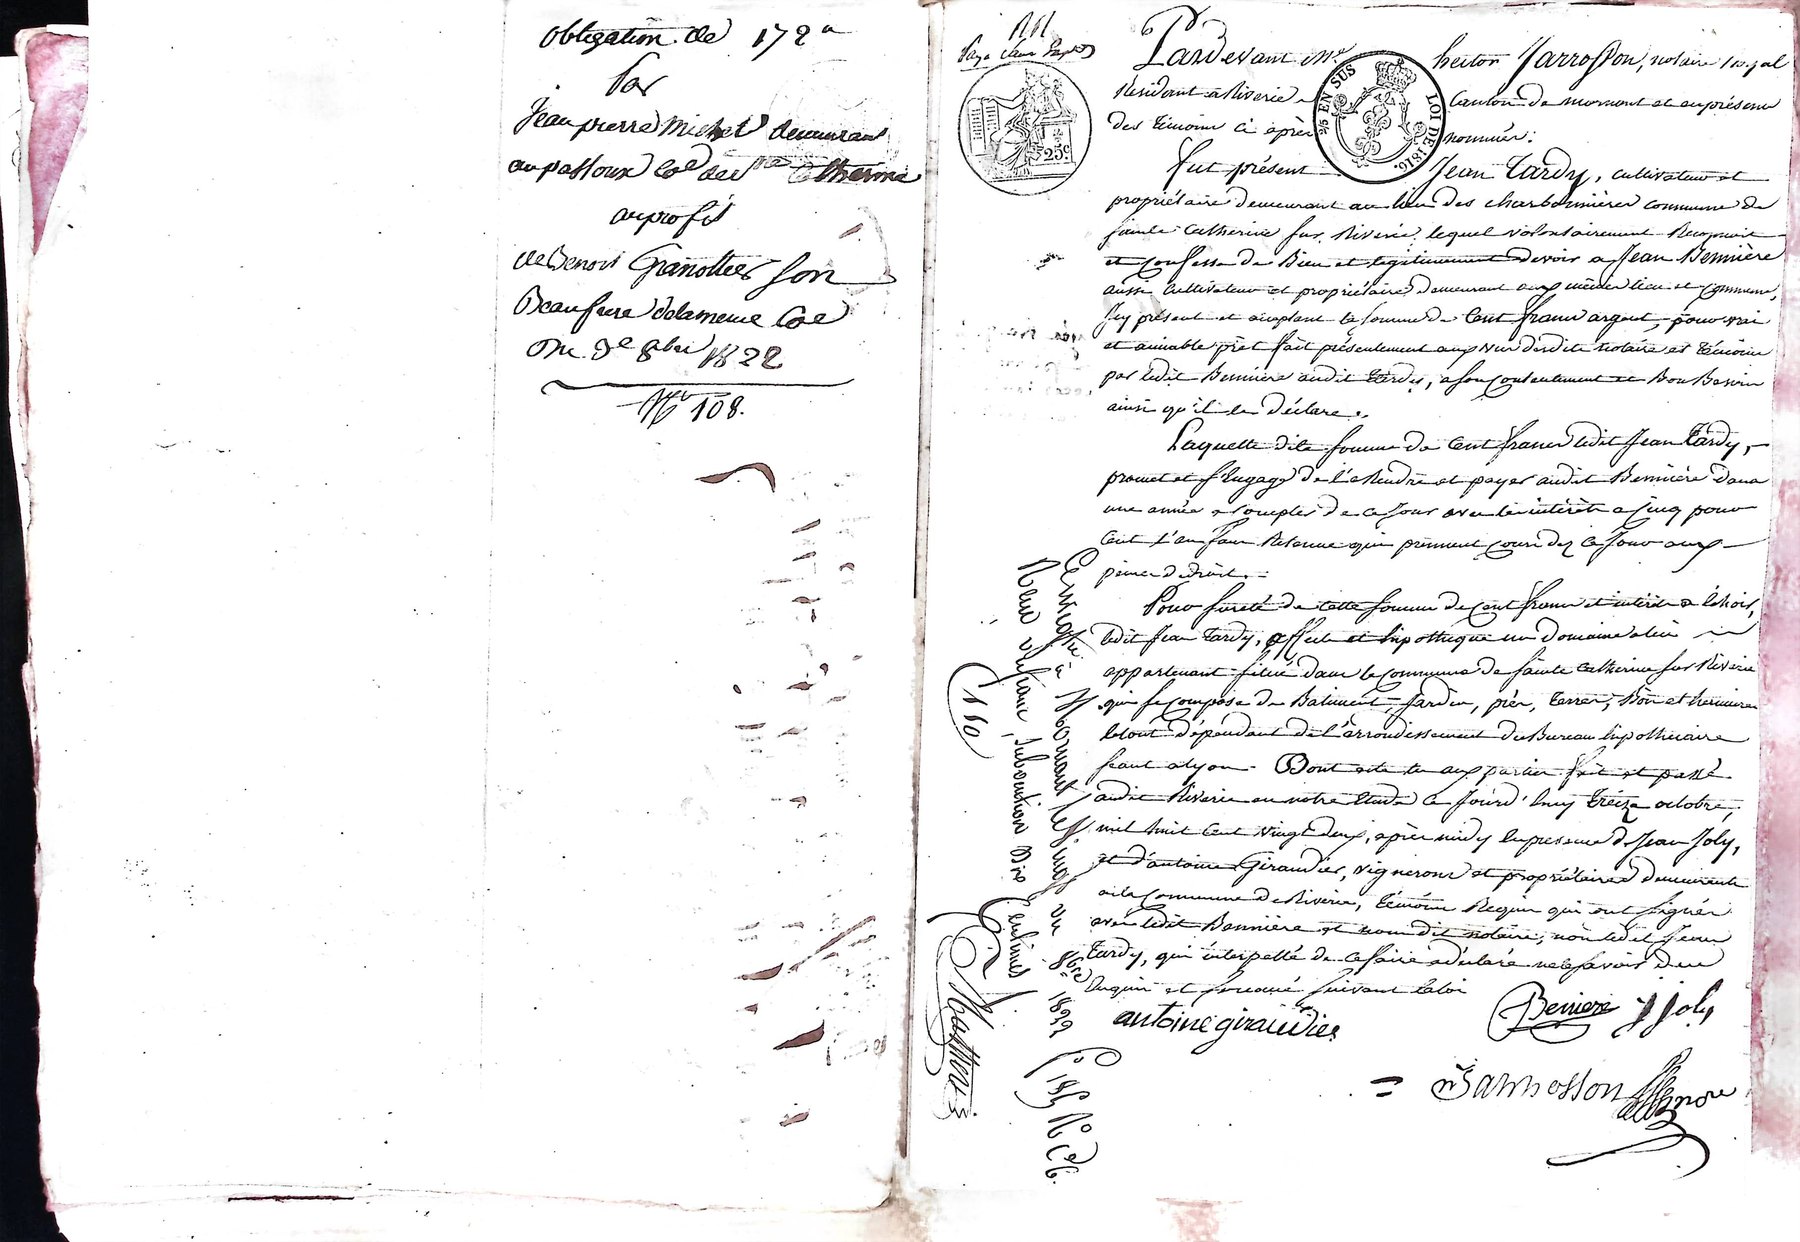 obligation de 172 
par
Jean pierre Michel demeurant
au passoux Coe de Ste Catherine
au profit
de Benoit Granottier son
Beaufrere de la meme Coe
Du 8bre 1822
No 108.
Pardevant Me hector Jarrosson, notaire royal
Résidant a Riverie Canton de mornant et en présence
des témoins ci après nommés:
fut présent Jean Tardy, cultivateur et
propriétaire demeurant au lieu des charbonnières commune de
sainte Catherine sur Riverie, lequel volontairement Reconnoit
et confesse de Bien et légitimement devoir a Jean Bennière
aussi cultivateur et propriétaire demeurant aux mêmes lieu et commune,
Icy présent et acceptant la somme de Cent francs argent, pour vrai
et aimable prêt fait présentement aux vus desdits notaire et témoins
par ledit Bennière audit Tardy, a son contentement et Bon Besoin
ainsi qu'il le déclare.
Laquelle dite somme de Cent francs ledit Jean Tardy,
promet et s'engage de la Rendre et payer audit Bennière dans
une année a compter de ce jour avec les intérêts a Cinq pour
Cent l'an sans Retenue qui prennent cours dez ce jour aux
peines de droit.
Pour sureté de cette somme de Cent francs et intérêts a échoir,
ledit Jean Tardy, affecte et hipothèque un domaine a lui
appartenant situé dans la commune de sainte Catherine sur Riverie
qui se compose de Batiments, Jardin, prés, terres, Bois et hermures
le tout dépendant de l'arrondissement du Bureau hipothécaire
séant a Lyon. Dont acte lu aux parties fait et passé
audit Riverie en notre Etude ce Jourd'huy treize octobre,
mil huit cent vingt deux, après midy En presence de Jean Joly,
et d'antoine Giraudier, vignerons et propriétaires demeurants
en la Commune de Riverie, témoins Requis qui ont signés
avec ledit Bennière et nous dit notaire, non ledit Jean
Tardy, qui interpellé de ce faire a déclaré ne le savoir de ce
Enquis et sommé suivant la loi
antoine giraudier Beniere J Joly
Jarrosson
Enregistré à Mornant le vingt un 8bre 1822 fo 185 Ro Ce 6.
Reçu un franc, subvention dix centimes
110
25c.
2/5 EN SUS
LOI DE 1816.